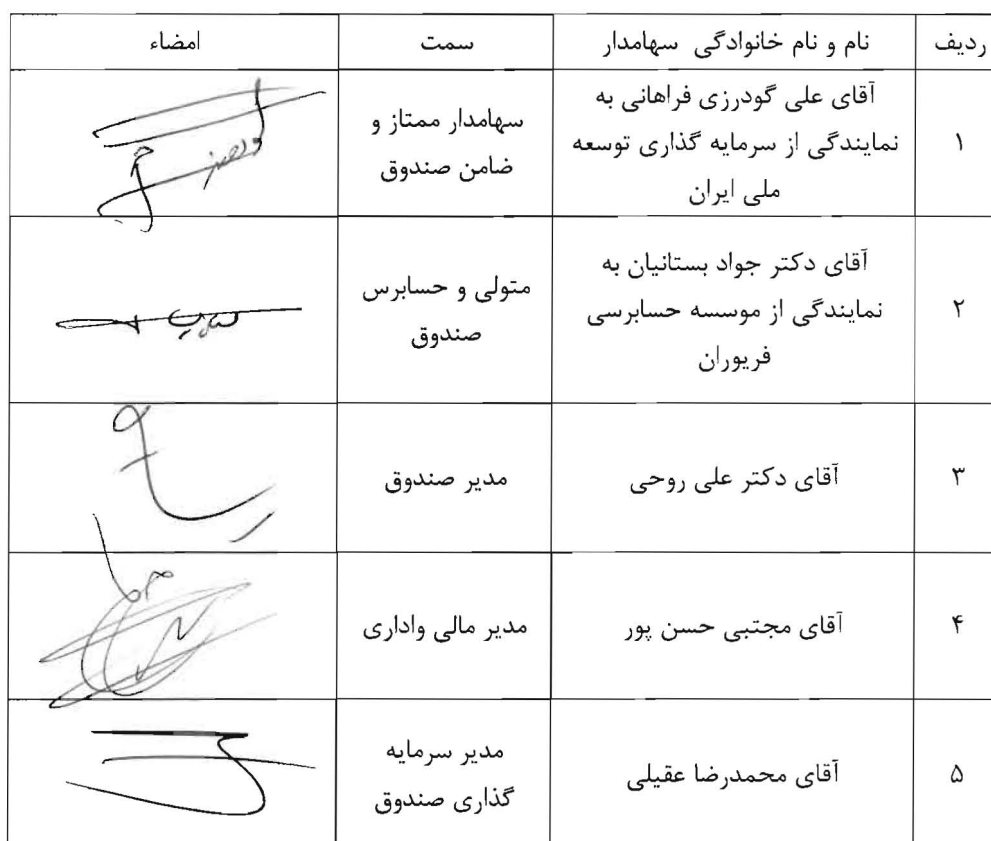 ردیف نام و نام خانوادگی سهامدار سمت امضاء
۱ آقای علی گودرزی فراهانی به نمایندگی از سرمایه گذاری توسعه ملی ایران سهامدار ممتاز و ضامن صندوق
۲ آقای دکتر جواد بستانیان به نمایندگی از موسسه حسابرسی فریوران متولی و حسابرس صندوق
۳ آقای دکتر علی روحی مدیر صندوق
۴ آقای مجتبی حسن پور مدیر مالی واداری
۵ آقای محمدرضا عقیلی مدیر سرمایه گذاری صندوق